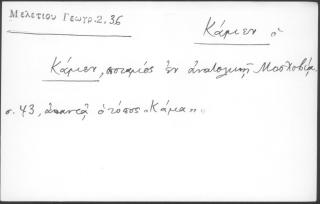 Μελετίου Γεωγρ. 2. 36
Κάμεν ὁ
Κάμεν, ποταμὸς ἐν ἀνατολικῇ Μοσχοβίᾳ.
σ. 43, ἁπανεᾷ ὁ τόπος „Κάμα"..